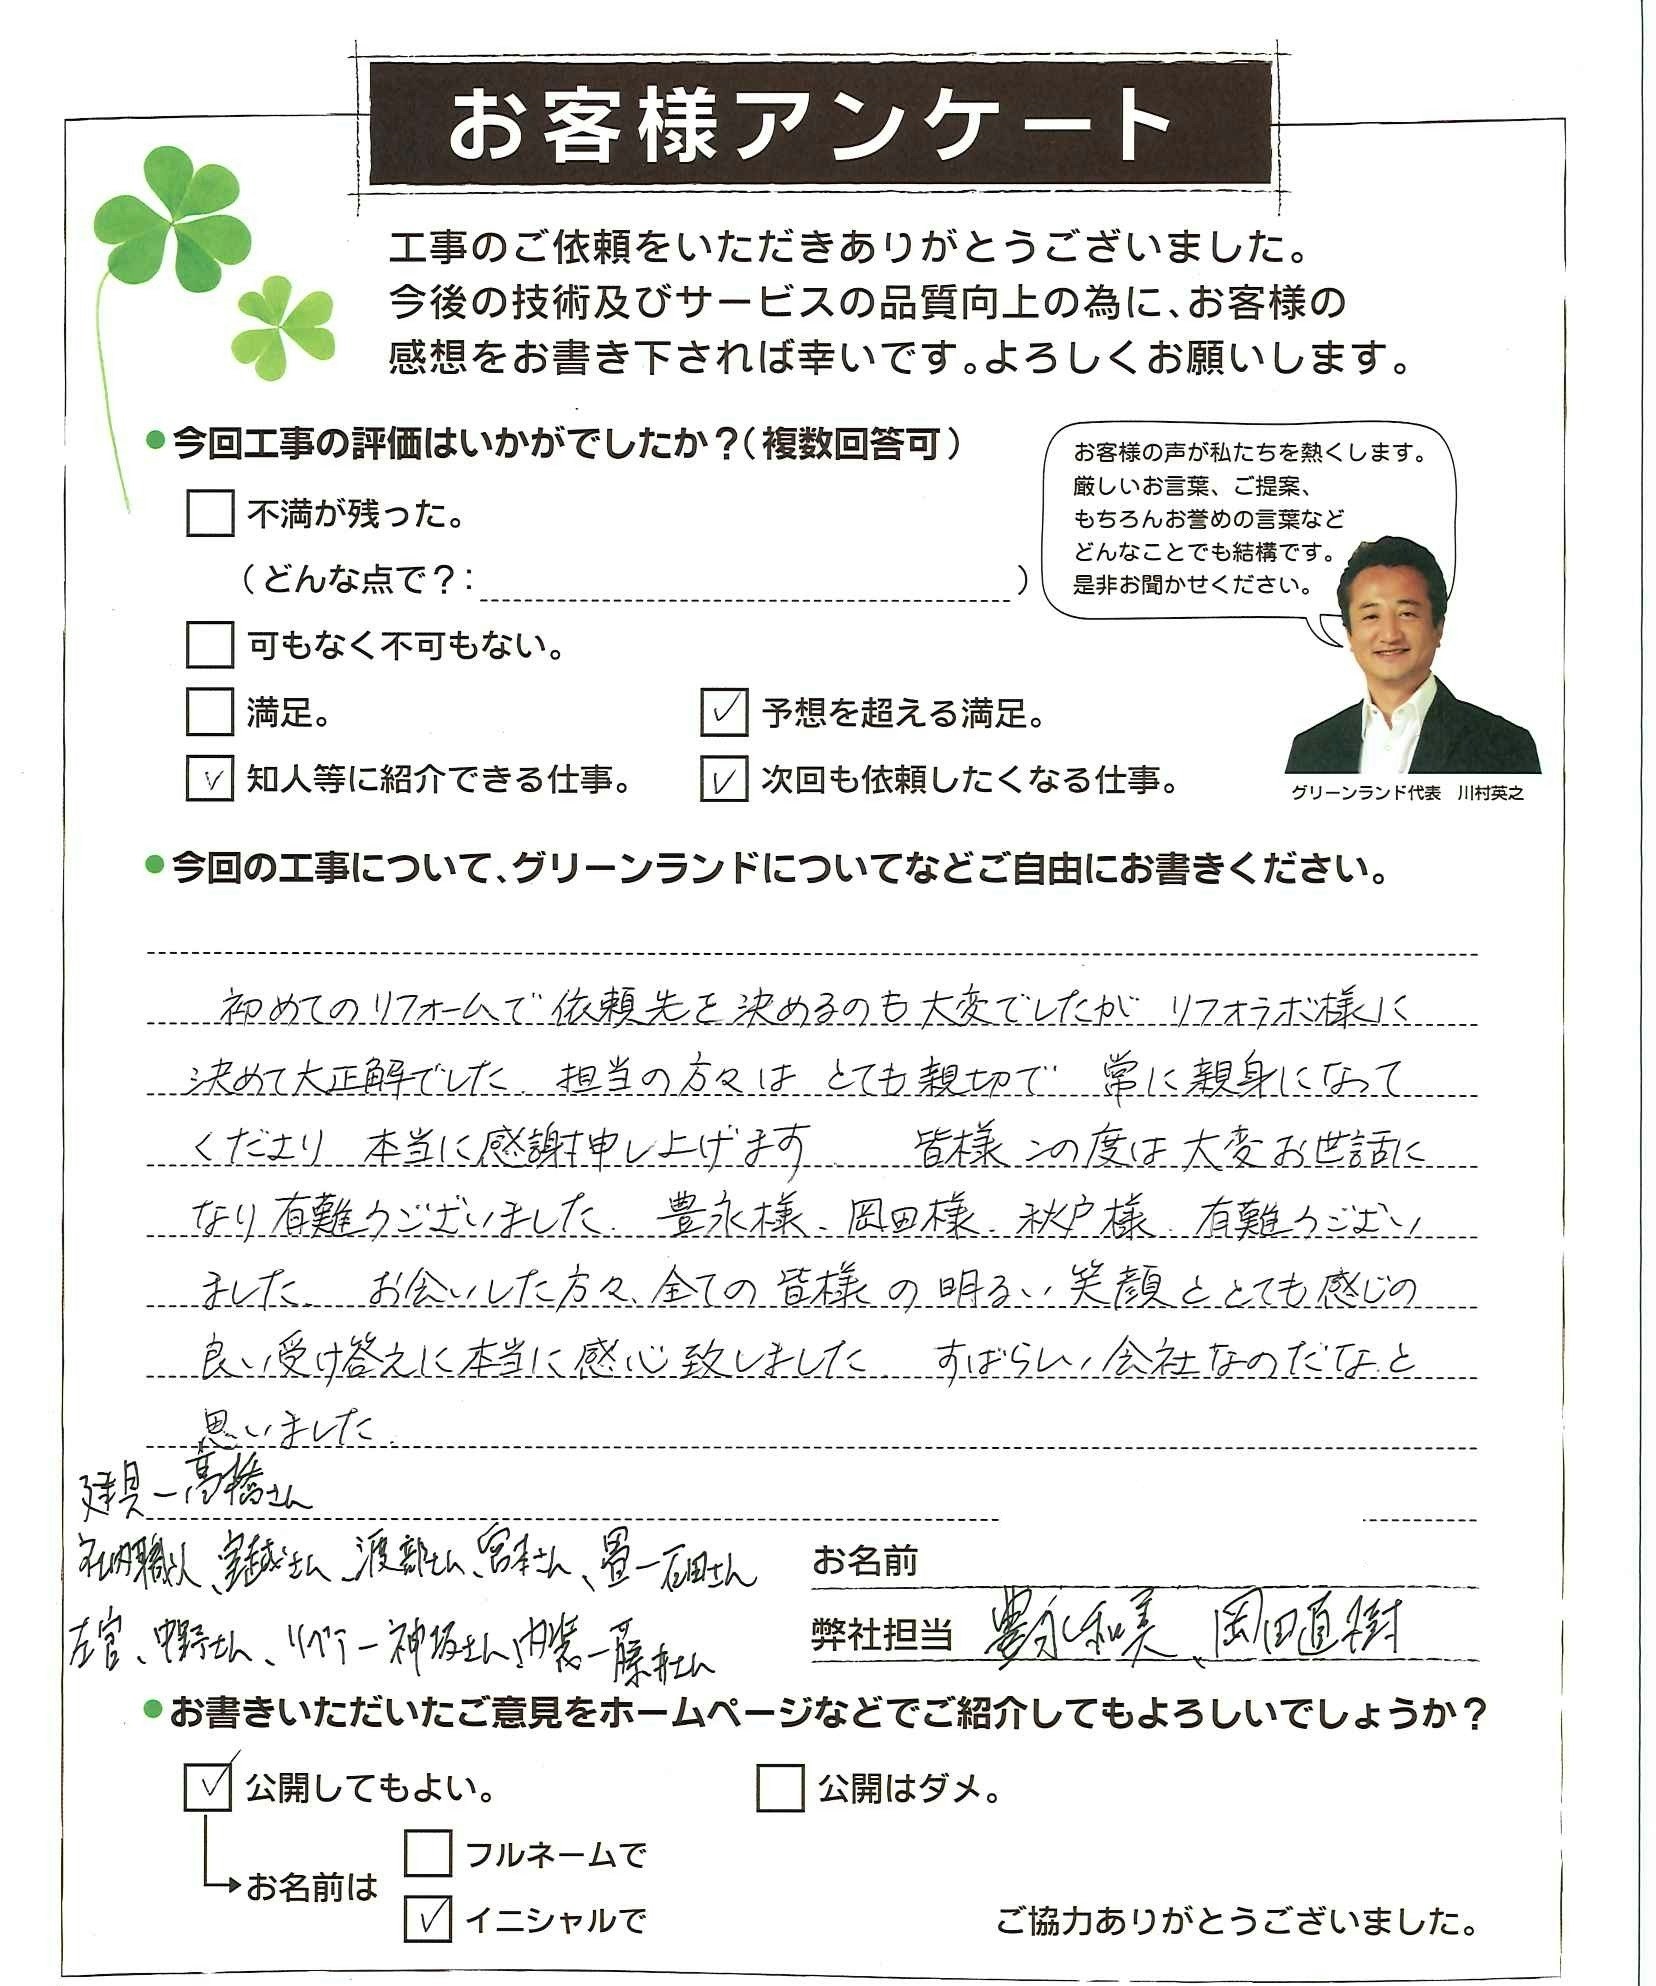 お客様アンケート
工事のご依頼をいただきありがとうございました。
今後の技術及びサービスの品質向上の為に、お客様の
感想をお書き下されば幸いです。よろしくお願いします。
●今回工事の評価はいかがでしたか？（複数回答可）
お客様の声が私たちを熱くします。
厳しいお言葉、ご提案、
もちろんお誉めの言葉など
どんなことでも結構です。
是非お聞かせください。
不満が残った。
（どんな点で？：　）
可もなく不可もない。
満足。
✓ 予想を超える満足。
✓ 知人等に紹介できる仕事。
✓ 次回も依頼したくなる仕事。
グリーンランド代表　川村英之
●今回の工事について、グリーンランドについてなどご自由にお書きください。
初めてのリフォームで依頼先を決めるのも大変でしたが リフォラボ様に
決めて大正解でした。担当の方々は とても親切で 常に親身になって
くださり 本当に感謝申し上げます。 皆様この度は大変お世話に
なり有難うございました。豊永様、岡田様、秋戸様、有難うござい
ました。 お会いした方々、全ての皆様の明るい笑顔ととても感じの
良い受け答えに本当に感心致しました。 すばらしい会社なのだな、と
思いました。
建具ー髙橋さん
社内職人、宝越さん、渡部さん、宮本さん、畳ー石田さん
左官、中野さん、リペアー神坂さん、内装ー藤井さん
お名前
弊社担当 豊永和美、岡田直樹
●お書きいただいたご意見をホームページなどでご紹介してもよろしいでしょうか？
✓ 公開してもよい。
公開はダメ。
お名前は
フルネームで
✓ イニシャルで
ご協力ありがとうございました。